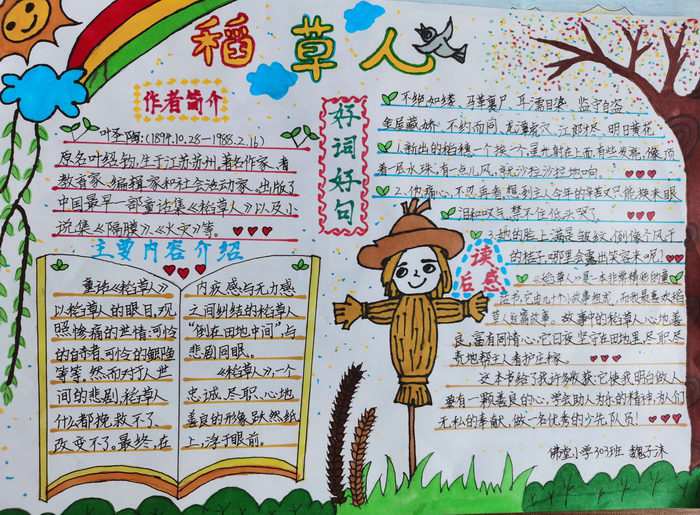 稻草人
作者简介
叶圣陶:(1894.10.28-1988.2.16)
原名叶绍钧,生于江苏苏州,著名作家、
教育家、编辑家和社会活动家,出版了
中国最早一部童话集《稻草人》以及小
说集《隔膜》、《火灾》等。
主要内容介绍
童话《稻草人》
以稻草人的眼目,观
照惨痛的世情:可怜
的
可怜的
等等。然而对于人世
间的悲剧,稻草人
什么都挽救不了、
改变不了。最终,在
内疚感与无力感
之间纠结的稻草人
“倒在田地中间”与
悲剧同眠。
《稻草人》,一个
忠诚、尽职、心地
善良的形象跃然纸
上,浮于眼前。
好词好句
不绝如缕、马革裹尸、耳濡目染、监守自盗
金屋藏娇、不约而同、龙潭虎穴、江郎才尽、明日黄花
1.新出的稻穗一个挨一个,星光射在上面有些发亮,像顶
着一层水珠,有一点儿风,就沙拉沙拉地响。
2.他痛心,不忍再看,想到主人今年的辛苦又只能换来眼
泪和叹气,禁不住低头哭了。
3.她的脸上满是皱纹,倒像个风干
的桔子,哪里会露出笑容来呢!
读后感
《稻草人》是一本非常精彩的童
话书,它由几十个小故事组成,而我最喜欢稻
草人这篇故事。故事中的稻草人心地善
良,富有同情心,它日夜坚守在田地里,尽职尽
责地帮主人看护庄稼。
这本书给了我许多收获,它使我明白做人
要有一颗善良的心,学会助人为乐的精神,
无私的奉献,做一名优秀的少先队员!
佛堂小学303班 魏子沐